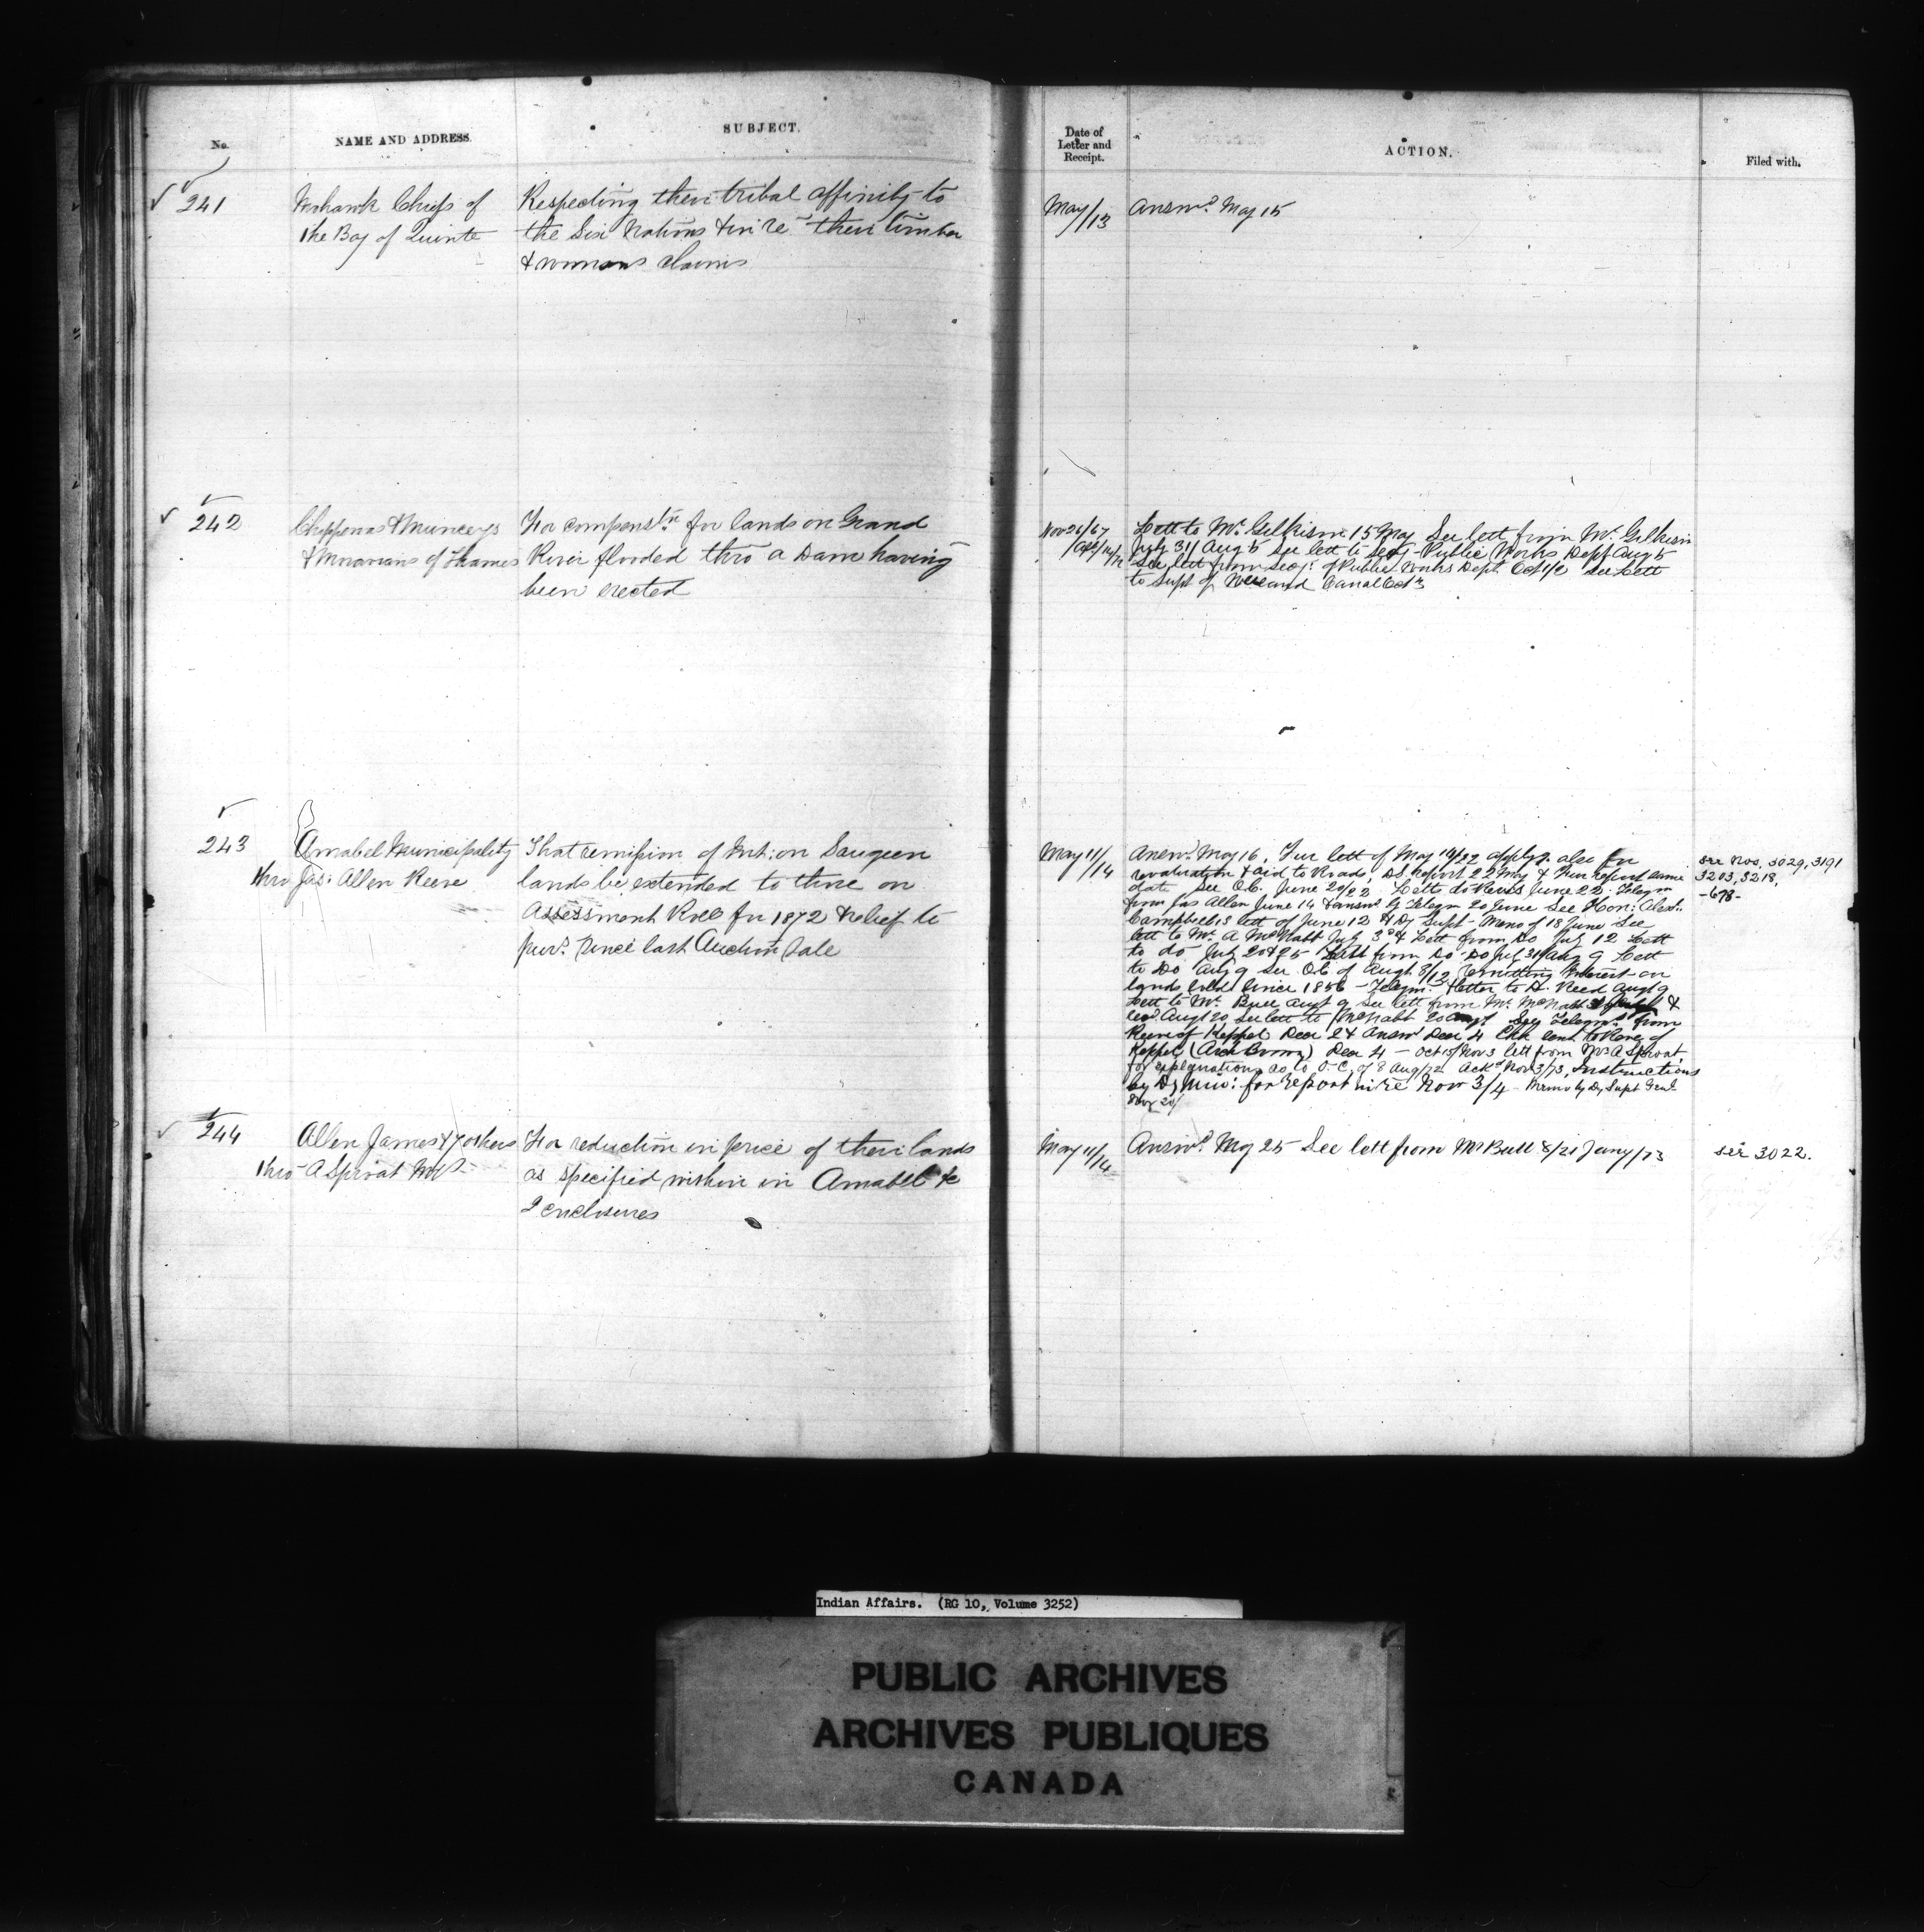 No.
NAME AND ADDRESS.
SUBJECT.
Date of
Letter and
Receipt.
ACTION.
Filed with.
241
Mohawk Chiefs of
the Bay of Quinte
Respecting their tribal affinity to
the Six Nations & in re their timber
& claims
May/13
Answd. May 15
242
Chippewas & Munceys
& Moravians of Thames
For compenstn for lands on Grand
River flooded thro a Dam having
been erected
Nov 26/67
Lett to Mr Gilkison 15 May See lett from Mr. Gilkison
July 31/Aug 5 See lett to Secy Public Works Dept Aug 5
See lett from Secy. of Public Works Dept. Oct 1/2 See Lett
to Supt of Welland Canal Oct 3
243
Amabel Municipality
thro Jas: Allen Reeve
That remission of Int: on Saugeen
lands be extended to those on
Assessment Roll for 1872 & relief to
purs. since last Auction Sale
May 11/14
Answd. May 16. Fur lett of May 14/22 applyg. also for
revaluation & aid to Roads, D.S. Report 22 May & Fur report same
date See O.C. June 20/22 Lett to Reeves June 22 Telegm
from Jas Allen June 14 & answd by Telegm 20 June See Hon: Alexr.
Campbell's lett of June 12 & Dy Supt Memo of 18 June See
lett to Mr. A McNabb July 3rd & Lett from Do July 12 Lett
to do July 20 & 25 Lett from Do Do July 31/Aug 9 Lett
to Do Aug 9 See O.C. of Augt. 8/12 remitting Interest on
lands sold since 1856 - Telegm. & letter to A. Reed Augt 9
Lett to Mr. Bull Augt 9 See lett from Mr. McNabb &
recd Augt 20 See lett to McNabb 20 Augt See Telegms from
Reeve of Keppel Decr 2 & Answd Decr 4 sent to Reeve of
Keppel (Arch ) Decr 4 - Oct 15/Nov 3 lett from Mr A Sproat
for explanations as to O.C. of 8 Aug/72 Ackd Nov 3/73, Instructions
by Dy Min: for report in re Nov 3/4 - Memo by Dy Supt Genl
Nov 20/
see Nos. 3029, 3191
3203, 3218,
-678-
244
Allen James & 7 others
thro A Sproat MP
For reduction in price of their lands
as specified within in Amabel &c
2 enclosures
May 11/14
Answd. May 25 See lett from Mr Bull 8/21 Jany/73
see 3022.
Indian Affairs. (RG 10, Volume 3252)
PUBLIC ARCHIVES
ARCHIVES PUBLIQUES
CANADA